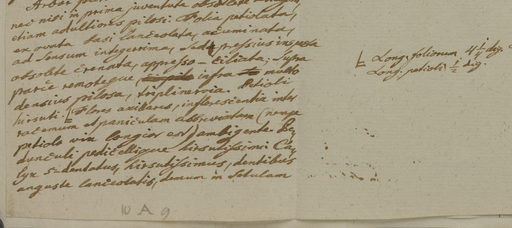 nec nisi in prima juventute obsolete
etiam adultiores pilosi. Folia petiolata,
ex ovata basi lanceolata, acuminata,
ad sensum integerrima, sed expressius inspecta
obsolete crenata, appresso-ciliata, supra
parce remoteque, infra multo
densius pilosa, triplinervia. Petioli
hirsuti. Flores axillares, inflorescentia inter
racemum et paniculam abbreviatam (nempe
petiolo vix longior est) ambigente. Pe
dunculi pedicellique hirsutissimi. Ca
lyx 5-dentatus, hirsutissimus, dentibus
anguste lanceolatis, demum in setulam
Long. foliorum 4 1/2 dig.
Long. petioli 1/2 dig.
W A 9